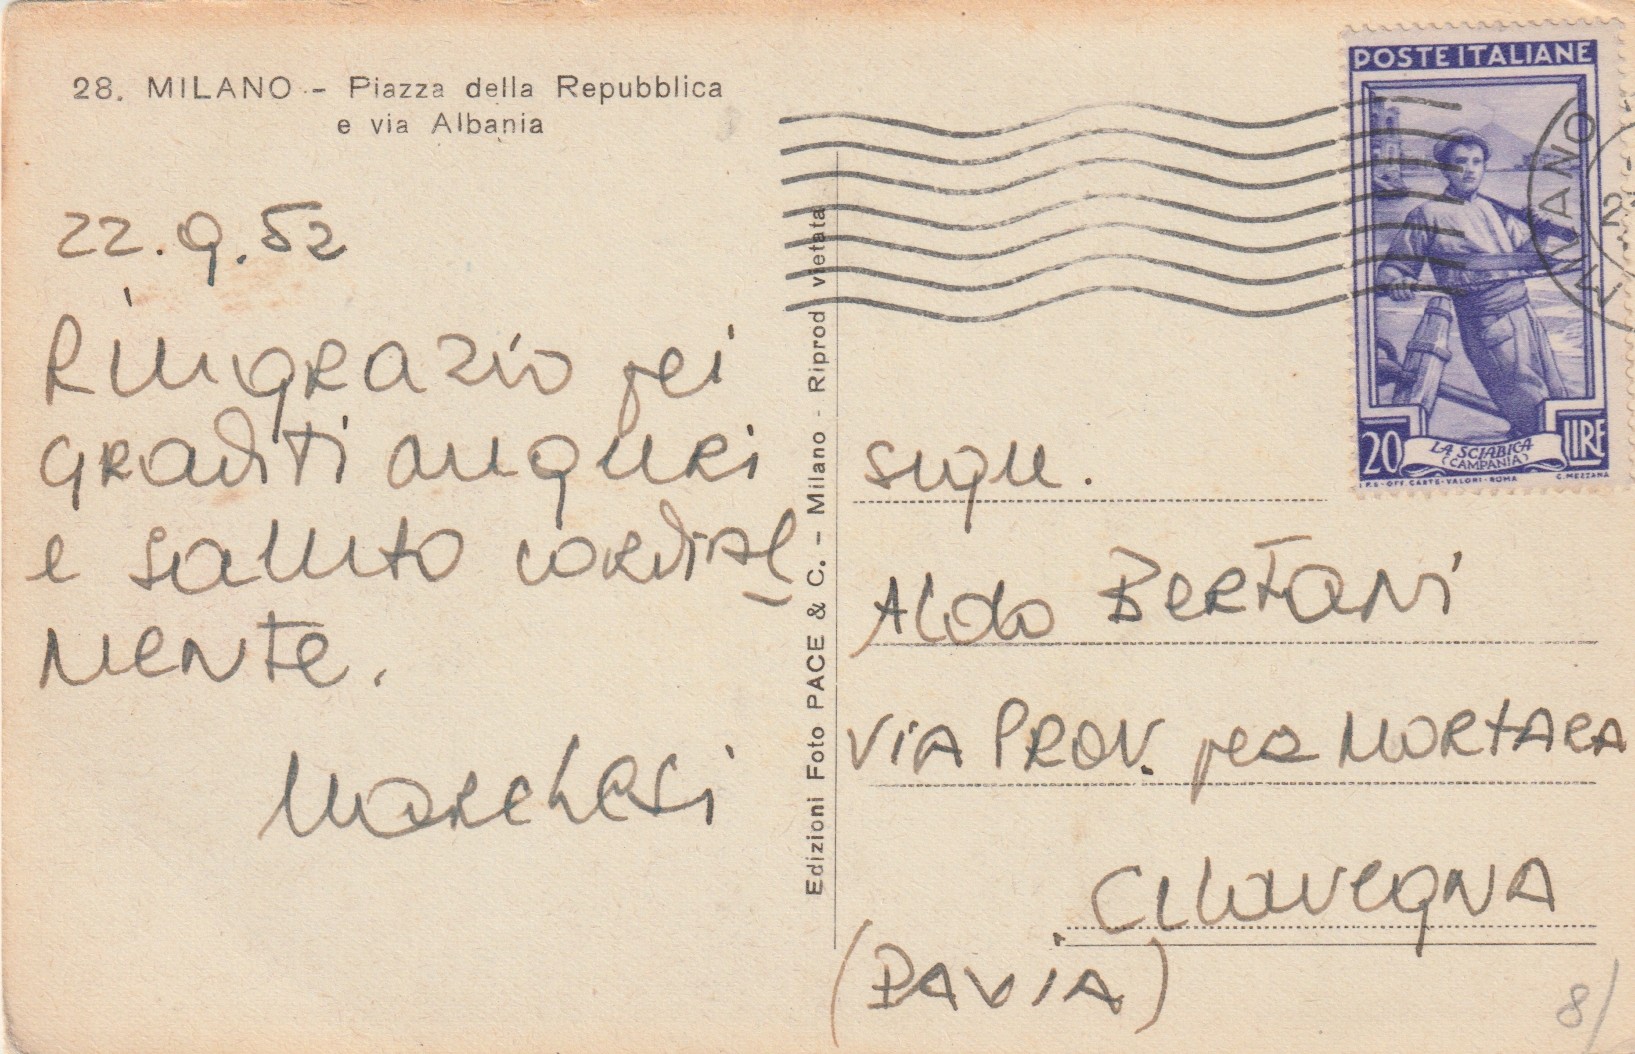 28. MILANO - Piazza della Repubblica
e via Albania
22.9.52
Ringrazio pei
graditi auguri
e saluto cordial
mente.
Marchesi
Edizioni Foto PACE & C. - Milano - Riprod vietata
POSTE ITALIANE
20
LA SCIABICA
(CAMPANIA)
LIRE
I.P.S.-OFF. CARTE-VALORI-ROMA
C. MEZZANA
MILANO
Sign.
Aldo BERTANI
VIA PROV. per MORTARA
CILAVEGNA
(PAVIA)
8/